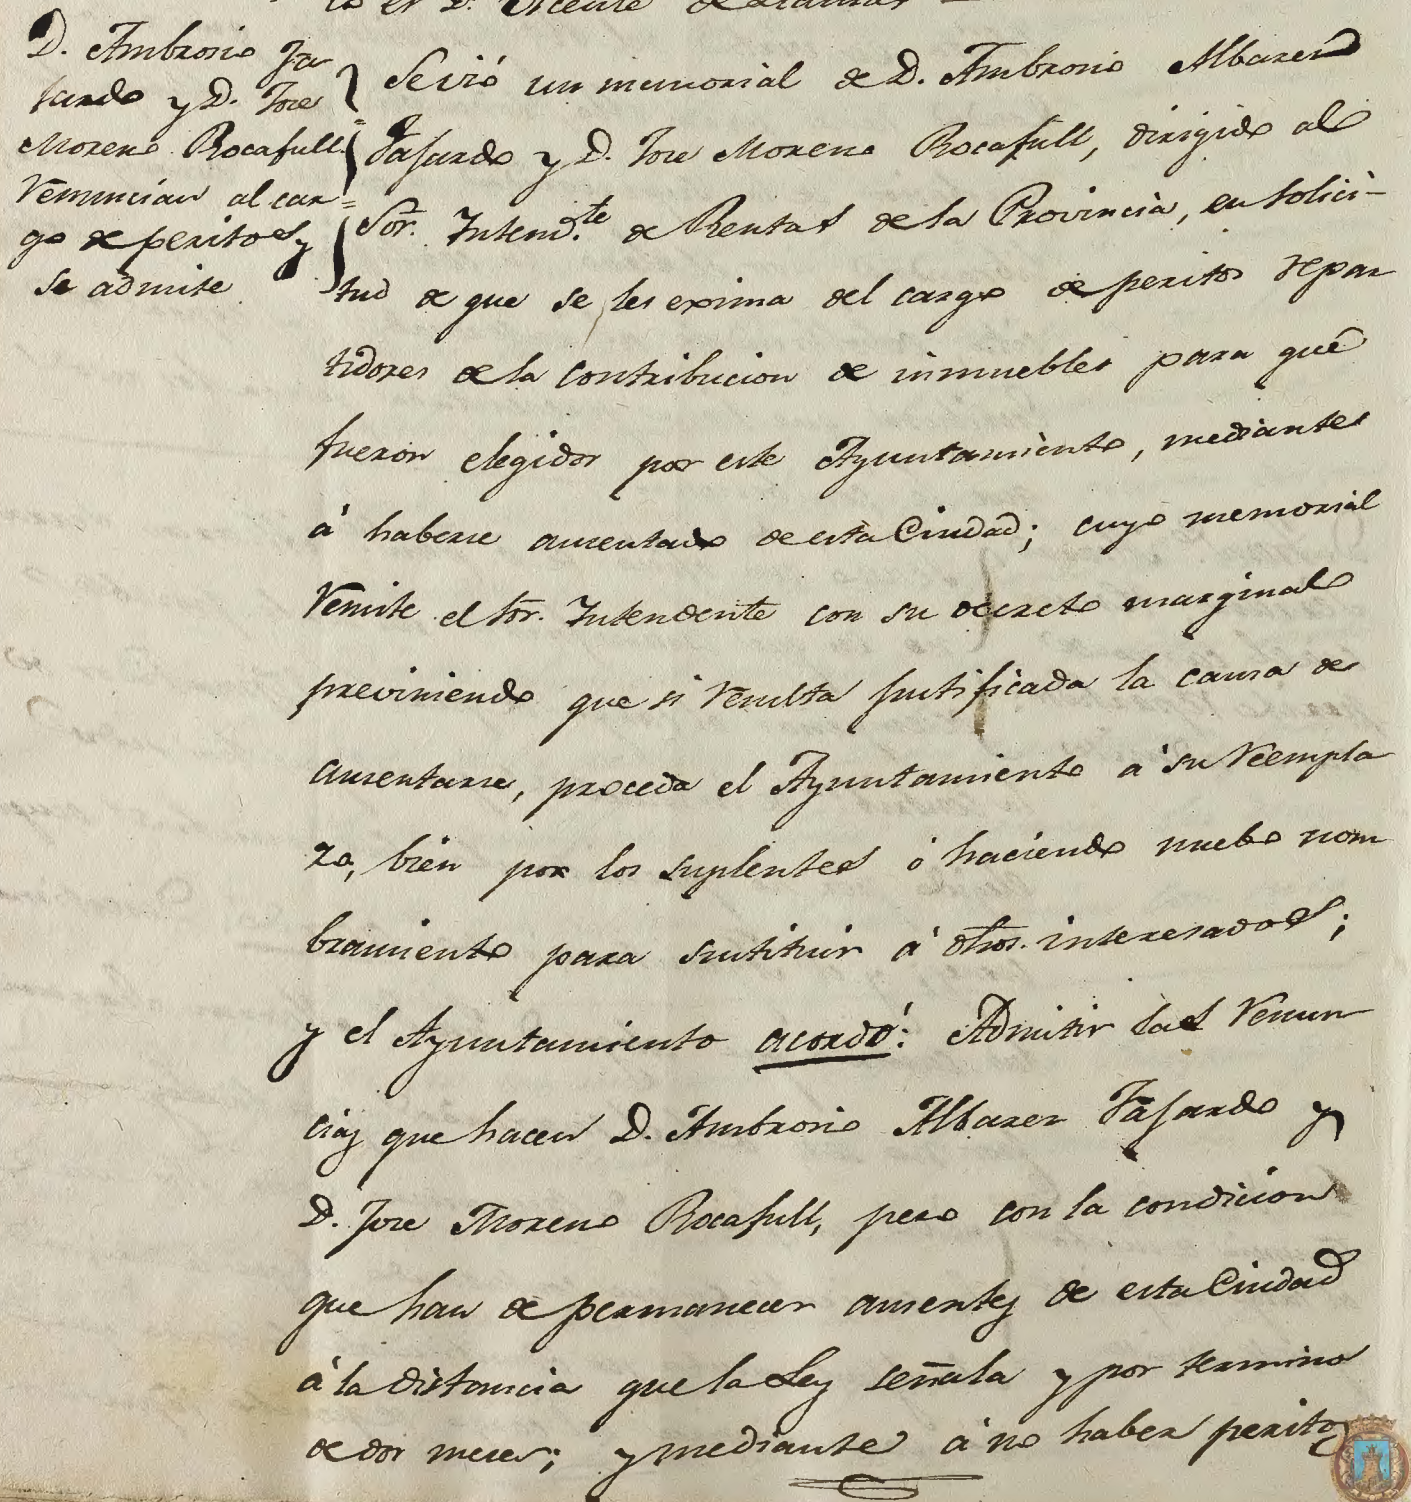 D. Ambrosio Fa
jardo y D. Jose
Moreno Rocafull
renuncian al car=
go de peritos y
se admite
Se vió un memorial de D. Ambrosio Albarez
Fajardo y D. Jose Moreno Rocafull, dirigido al
Sor. Intend.te de Rentas de la Provincia, en solici-
tud de que se les exima del cargo de peritos repar
tidores de la contribucion de inmuebles para que
fueron elegidos por este Ayuntamiento, mediante
á haberse ausentado de esta Ciudad; cuyo memorial
remite el Sor. Intendente con su decreto marginal
previniendo que si resulta justificada la causa de
ausentarse, proceda el Ayuntamiento á su reempla
zo, bien por los suplentes ó haciendo nuebo nom
bramiento para sustituir á dhos. interesados;
y el Ayuntamiento acordó: Admitir las renun
cias que hacen D. Ambrosio Albarez Fajardo y
D. Jose Moreno Rocafull, pero con la condicion
que han de permanecer ausentes de esta Ciudad
á la distancia que la Ley señala y por termino
de dos meses; y mediante á no haber peritos